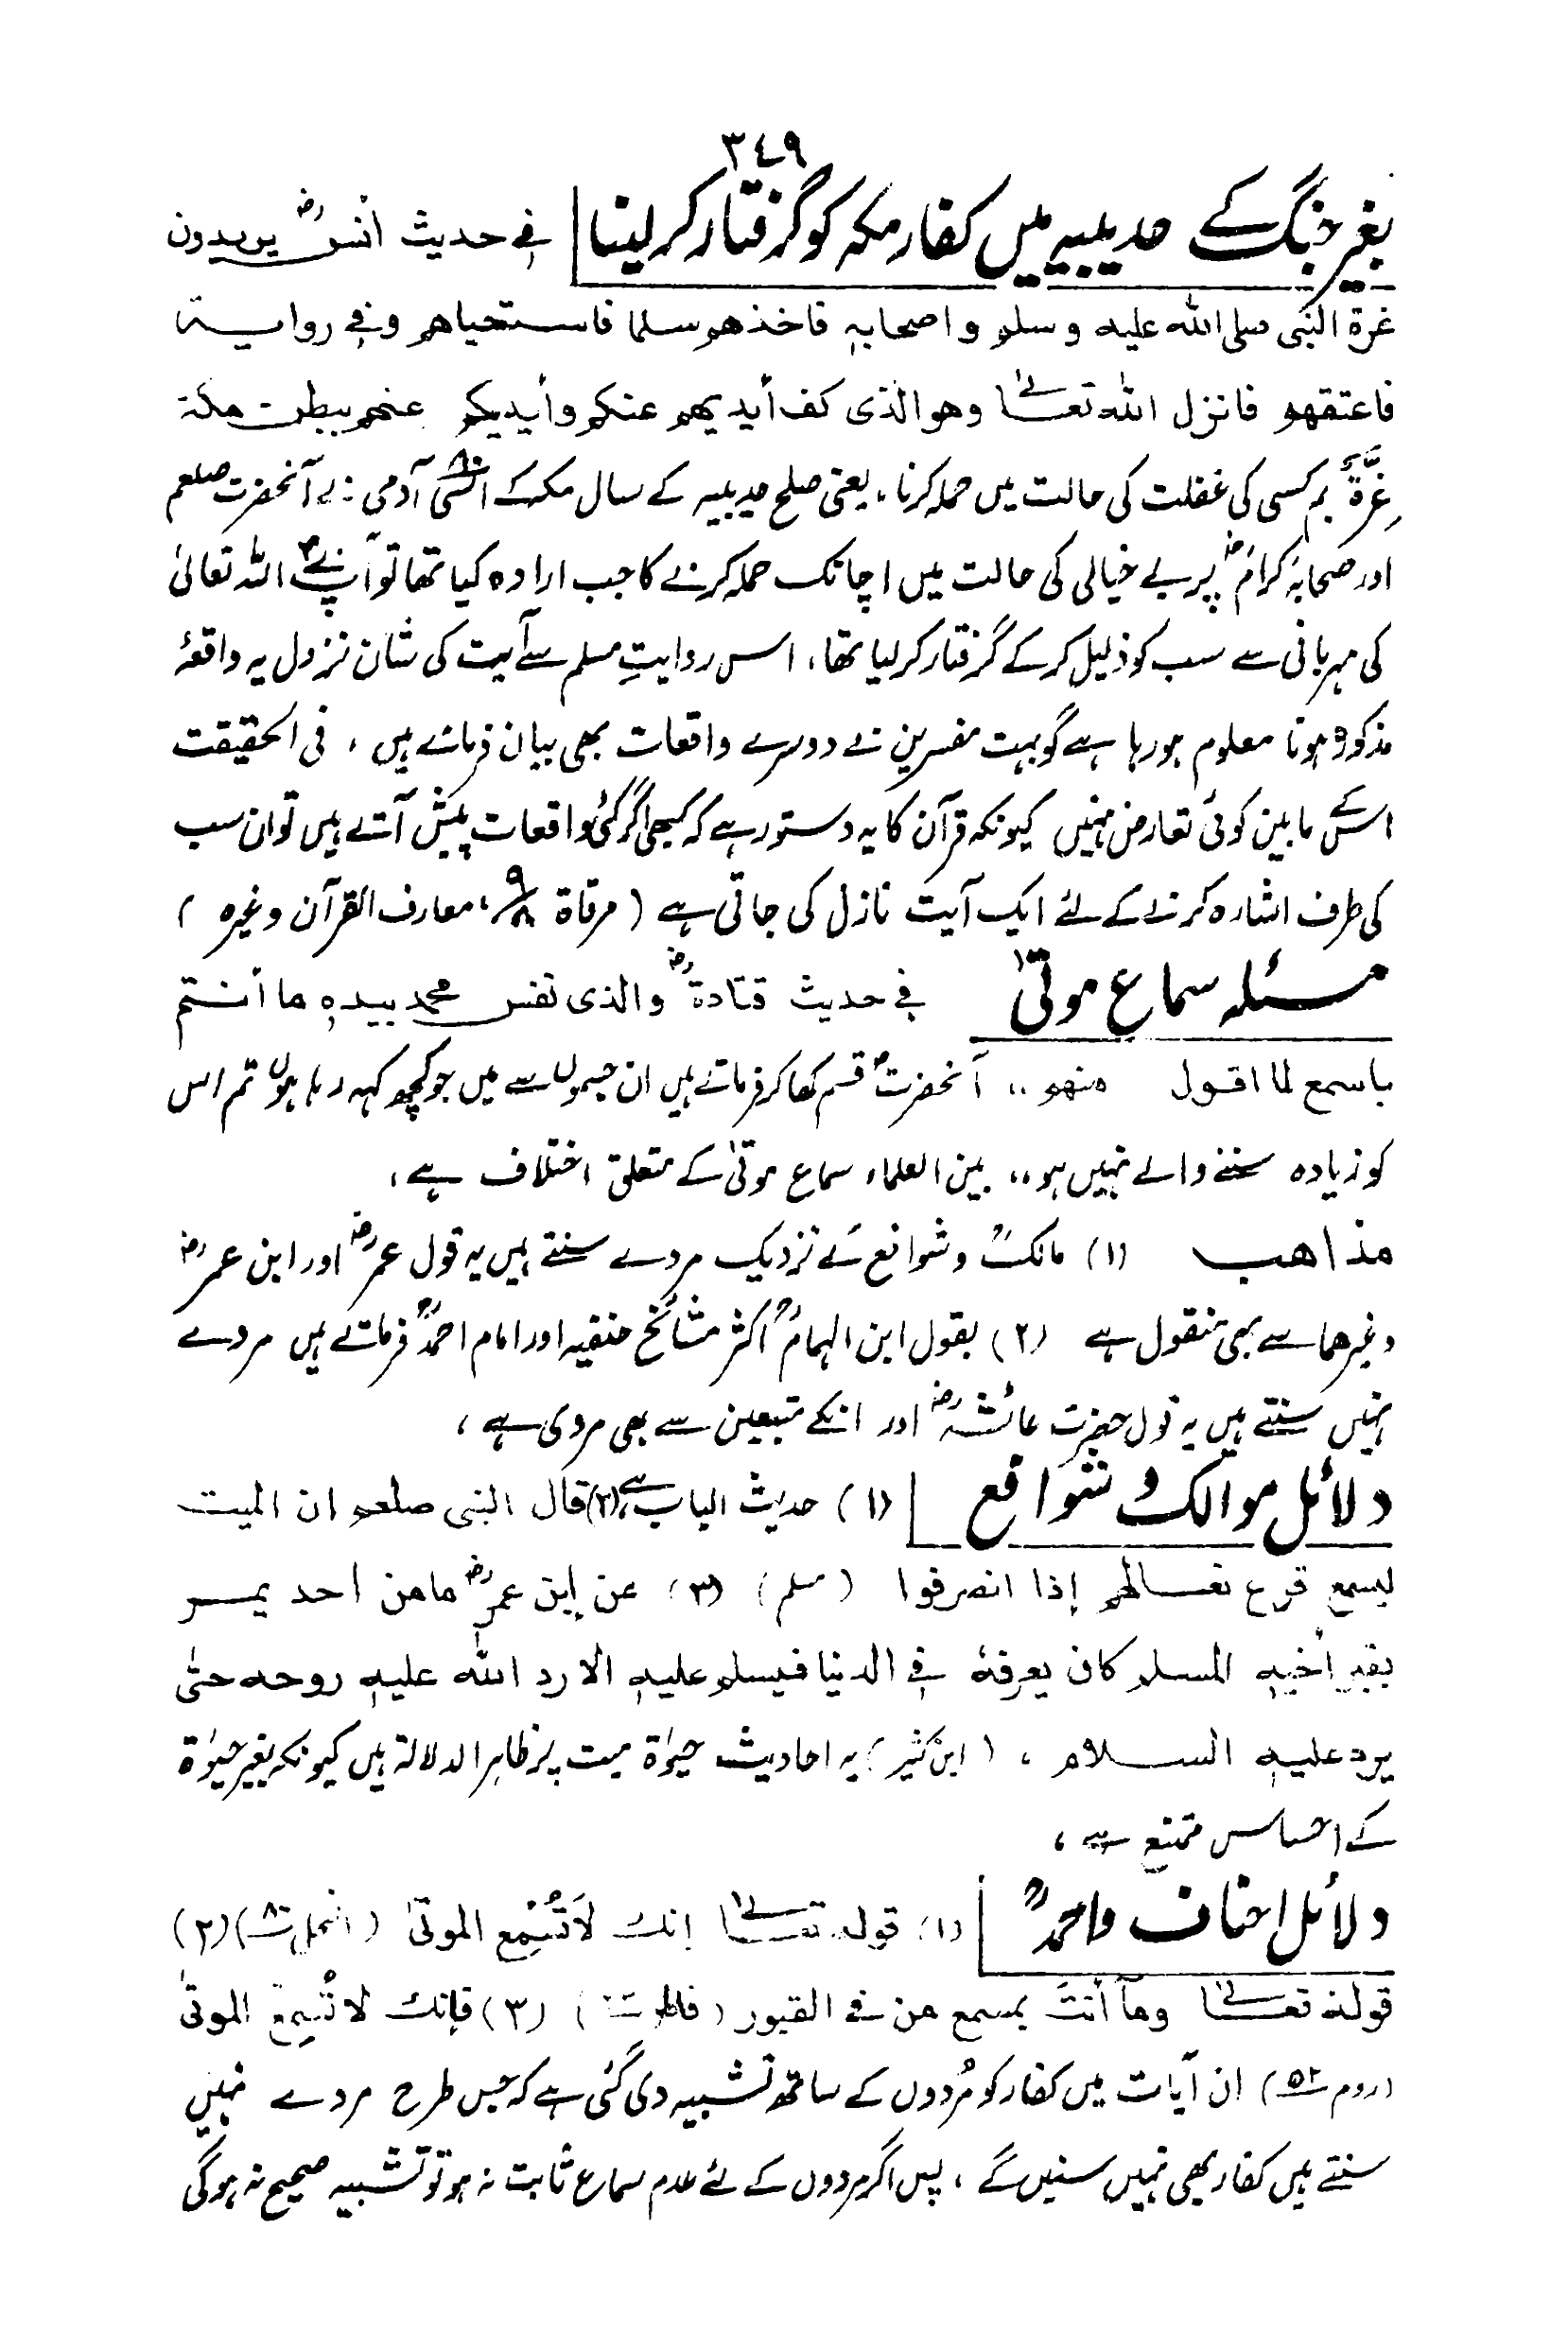 ٣٤٩
بغیر جنگ کے حدیبیہ میں کفار مکہ کو گرفتار کر لینا فی حدیث أنسؓ یریدون
غرة النبی صلی اللہ علیہ وسلم واصحابہ فاخذھم سلما فاستحیاھم وفی روایة
فاعتقھم فانزل اللہ تعالٰی وھو الذی کف أیدیھم عنکم وأیدیکم عنھم ببطن مکة
غِرَّةٌ بم کسی کی غفلت کی حالت میں حملہ کرنا، یعنی صلح حدیبیہ کے سال مکہ کے اسّی ۸۰ آدمی نے آنحضرت صلعم
اور صحابۂ کرامؓ پر بے خیالی کی حالت میں اچانک حملہ کرنے کا جب ارادہ کیا تھا تو آپؐ نے اللہ تعالیٰ
کی مہربانی سے سب کو ذلیل کر کے گرفتار کر لیا تھا، اس روایتِ مسلم سے آیت کی شان نزول یہ واقعۂ
مذکورہ ہونا معلوم ہو رہا ہے گو بہت مفسرین نے دوسرے واقعات بھی بیان فرمائے ہیں، فی الحقیقت
اسکے مابین کوئی تعارض نہیں کیونکہ قرآن کا یہ دستور ہے کہ کبھی اگر کئی واقعات پیش آتے ہیں تو ان سب
کی طرف اشارہ کرنے کے لئے ایک آیت نازل کی جاتی ہے (مرقاة ۹/۸، معارف القرآن وغیرہ)
مسئلہ سماع موتیٰ فی حدیث قتادةؓ والذی نفس محمد بیدہ ما أنتم
باسمع لما اقول منھم،، آنحضرتؐ قسم کھا کر فرماتے ہیں ان جسموں سے میں جو کچھ کہہ رہا ہوں تم اس
کو زیادہ سننے والے نہیں ہو،، بین العلماء سماع موتیٰ کے متعلق اختلاف ہے،
مذاھب (۱) مالکؒ وشوافع کے نزدیک مردے سنتے ہیں یہ قول عمرؓ اور ابن عمرؓ
وغیرھما سے بھی منقول ہے (۲) بقول ابن الہمامؒ اکثر مشائخ حنفیہ اور امام احمدؒ فرماتے ہیں مردے
نہیں سنتے ہیں یہ قول حضرت عائشہؓ اور انکے متبعین سے بھی مروی ہے،
دلائل موالک و شوافع (۱) حدیث الباب ہے، (۲) قال النبی صلعم ان المیت
لیسمع قرع نعالھم إذا انصرفوا (مسلم) (۳) عن إبن عمرؓ ما من احد یمر
بقبر أخیہ المسلم کان یعرفہٗ فی الدنیا فیسلم علیہ الا رد اللہ علیہ روحہ حتیٰ
یرد علیہ السلام، (ابن کثیر) یہ احادیث حیوٰة میت پر ظاہر الدلالة ہیں کیونکہ بغیر حیوٰة
کے احساس ممتنع ہے،
دلائل احناف واحمدؒ (۱) قولہ تعالٰی إنک لَا تُسْمِع الموتیٰ (النحل ۸۰) (۲)
قولہ تعالٰی وماَ أنتَ بمسمع من فی القبور (فاطر) (۳) فإنک لا تُسمِعُ الموتیٰ
(روم ۵۲) ان آیات میں کفار کو مُردوں کے ساتھ تشبیہ دی گئی ہے کہ جس طرح مردے نہیں
سنتے ہیں کفار بھی نہیں سنیں گے، پس اگر مردوں کے لئے عدم سماع ثابت نہ ہو تو تشبیہ صحیح نہ ہو گی